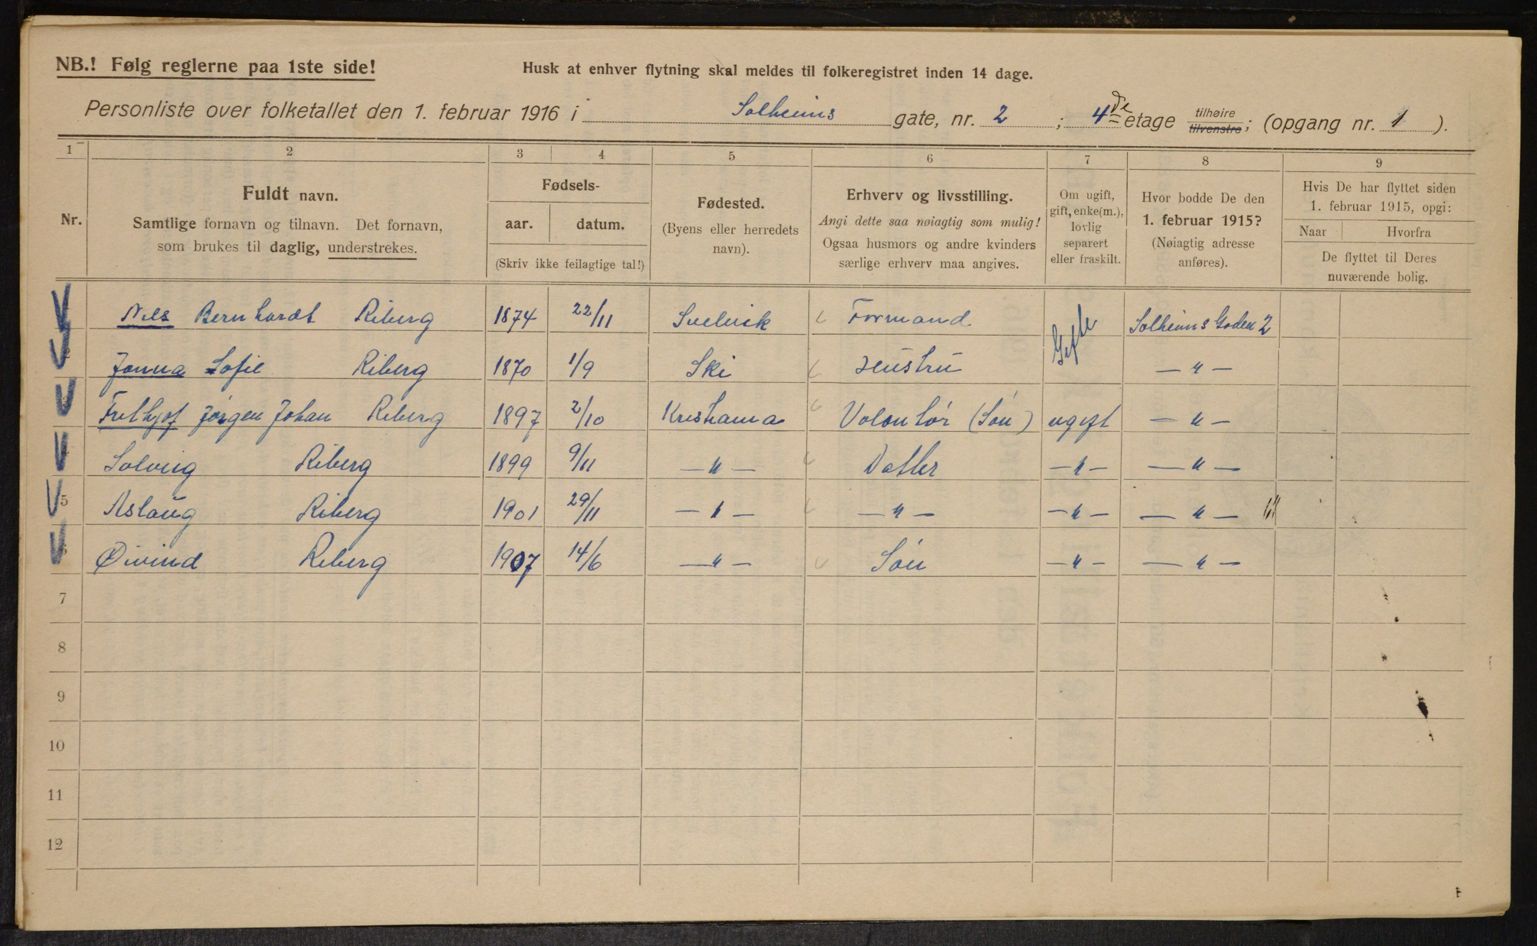 NB.! Følg reglerne paa 1ste side!
Husk at enhver flytning skal meldes til folkeregistret inden 14 dage.
Personliste over folketallet den 1. februar 1916 i Solheims gate, nr. 2 ; 4de etage tilhøire tilvenstre; (opgang nr. 1 ).
1 2 3 4 5 6 7 8 9
Nr.
Fuldt navn.
Samtlige fornavn og tilnavn. Det fornavn,
som brukes til daglig, understrekes.
Fødsels-
aar. datum.
(Skriv ikke feilagtige tal!)
Fødested.
(Byens eller herredets
navn).
Erhverv og livsstilling.
Angi dette saa nøiagtig som mulig!
Ogsaa husmors og andre kvinders
særlige erhverv maa angives.
Om ugift,
gift, enke(m.),
lovlig
separert
eller fraskilt.
Hvor bodde De den
1. februar 1915?
(Nøiagtig adresse
anføres).
Hvis De har flyttet siden
1. februar 1915, opgi:
Naar Hvorfra
De flyttet til Deres
nuværende bolig.
Nils Bernhardt Riberg 1874 22/11 Svelvik Formand Gifte Solheims Gaden 2
Jonna Sofie Riberg 1870 1/9 Ski Hustru — " —
Frithjof Jørgen Johan Riberg 1897 2/10 Kristiania Volontør (Søn) ugift — " —
Solveig Riberg 1899 9/11 — " — Datter — " — — " —
5 Aslaug Riberg 1901 29/11 — " — — " — — " — — " —
6 Øivind Riberg 1907 14/6 — " — Søn — " — — " —
7
8
9
10
11
12